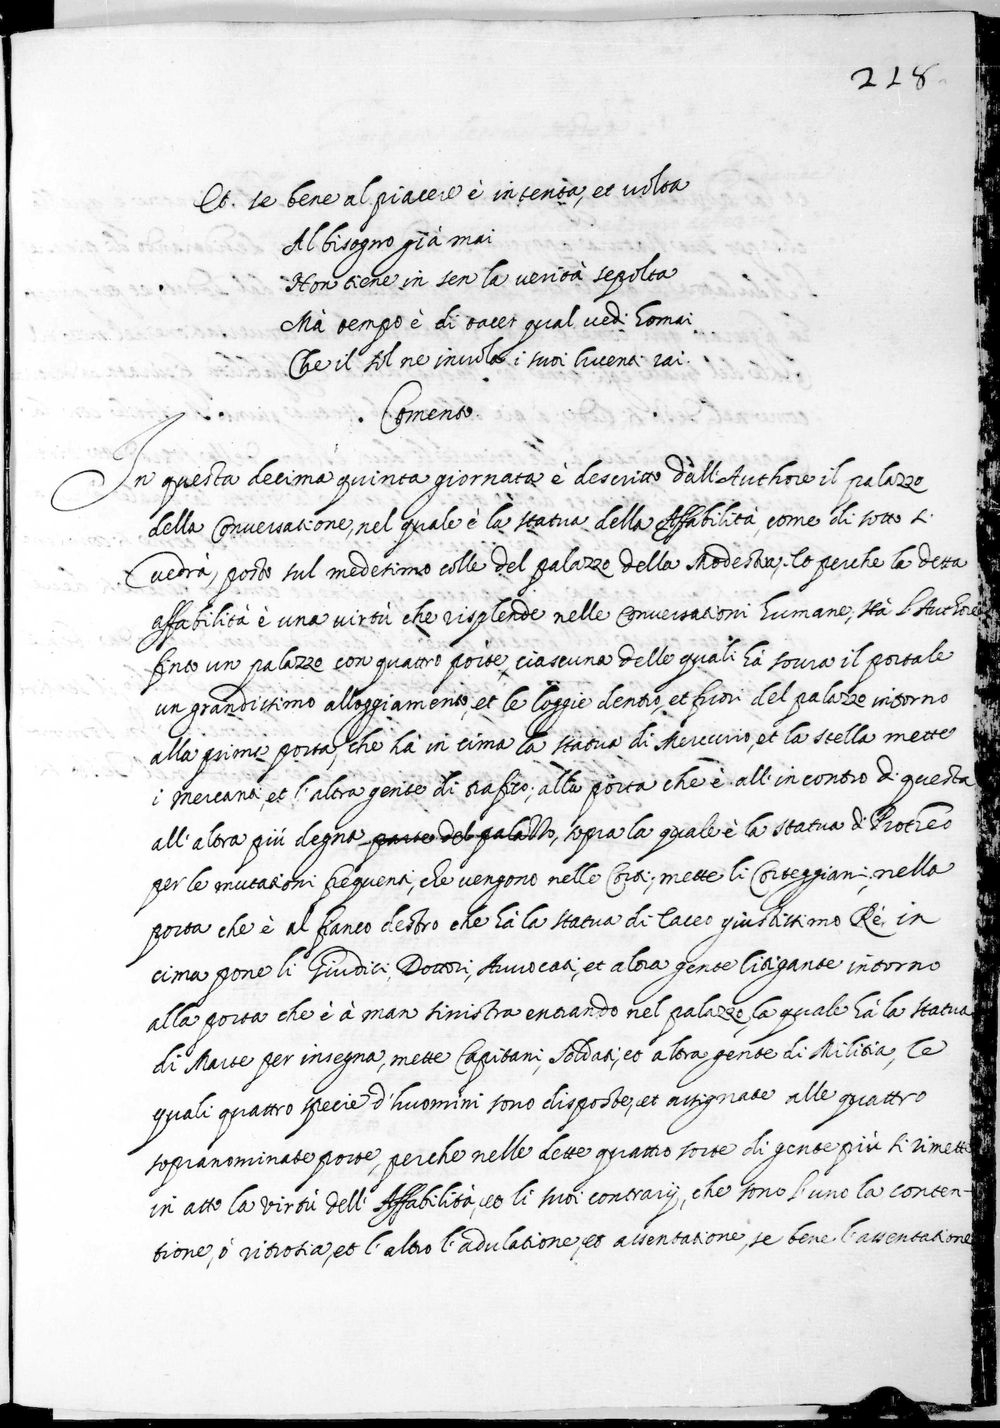 218
Et se bene al piacere è intenta, et volta
Al bisogno già mai
Non tiene in sen la verità sepolta
Mà tempo è di tacer qual vedi homai
Che il sol ne invola i suoi lucenti rai.
Comento.
In questa decima quinta giornata è descritto dall'Authore il palazzo
della Conversatione, nel quale è la statua della Affabilità, come di sotto si
vedrà, posto sul medesimo colle del palazzo della Modestia; lo perche la detta
affabilità è una virtù che risplende nelle Conversationi humane, hà l'Authore
finto un palazzo con quattro porte, ciascuna delle quali hà sovra il portale
un grandissimo alloggiamento, et le loggie dentro, et fuori del palazzo intorno
alla prima porta, che hà in cima la statua di Mercurio, et la stella mette
i mercanti, et l'altra gente di trafico; alla porta che è all'incontro di questa
all'altra più degna parte del palazzo, sopra la quale è la statua di Protheo
per le mutationi frequenti, che vengono nelle Corti; mette li Corteggiani; nella
porta che è al fianco destro che hà la statua di Caceo giustissimo Rè, in
cima pone li Giudici, Dottori, Avvocati, et altra gente litigante intorno
alla porta che è à man sinistra entrando nel palazzo, la quale hà la statua
di Marte per insegna, mette Capitani, Soldati, et altra gente di Militia, le
quali quattro specie d'huomini sono disposte, et assignate alle quattro
sopranominate porte, perche nelle dette quattro sorte di gente più si rimette
in atto la virtù dell'Affabilità, et li suoi contrarij, che sono l'uno la conten-
tione, ò ritrosia, et l'altro l'adulatione, et assentatione, se bene l'assentatione